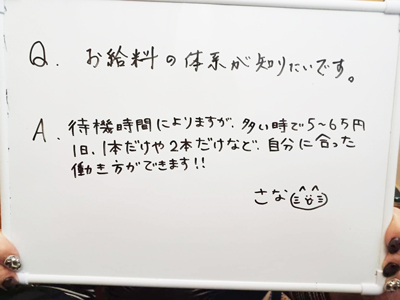 Q. お給料の体系が知りたいです。
A. 待機時間によりますが、多い時で5~6万円
1日、1本だけや2本だけなど、自分に合った
働き方ができます!!
さな